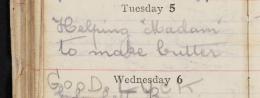 Tuesday 5
Helping "Madam"
to make butter
Wednesday 6
GOOD LUCK